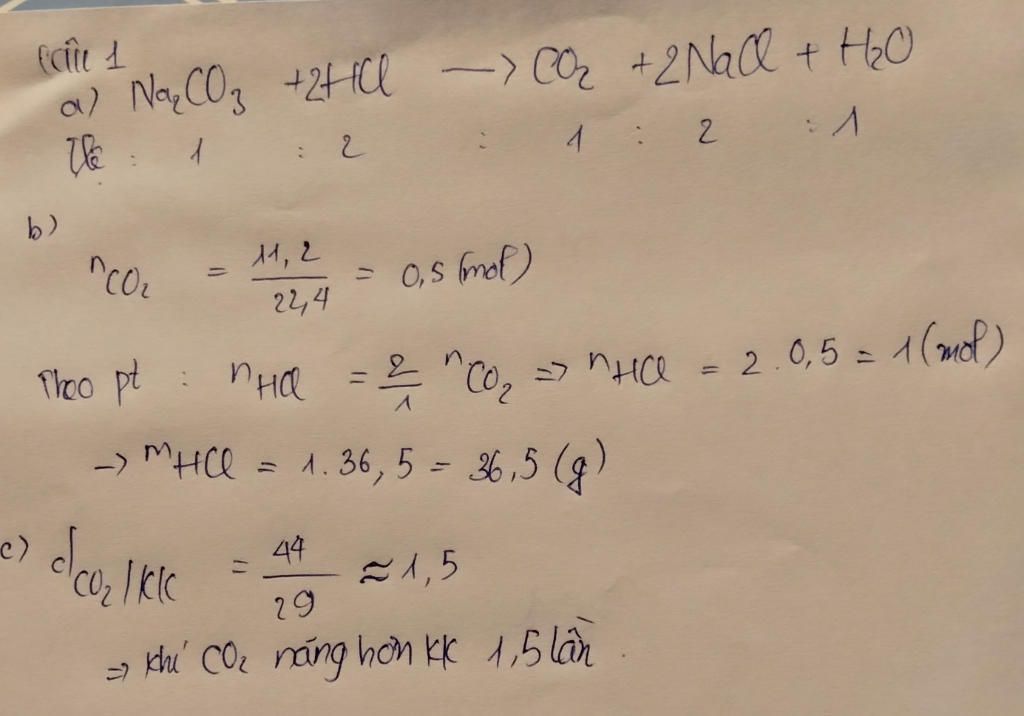 Câu 1
a) Na₂CO₃ + 2HCl → CO₂ + 2NaCl + H₂O
Tỉ lệ : 1 : 2 : 1 : 2 : 1
b)
nCO₂ = 11,2 / 22,4 = 0,5 (mol)
Theo pt : nHCl = 2/1 nCO₂ => nHCl = 2 . 0,5 = 1 (mol)
→ mHCl = 1 . 36,5 = 36,5 (g)
c) dCO₂/KK = 44 / 29 ≈ 1,5
=> khí CO₂ nặng hơn KK 1,5 lần .